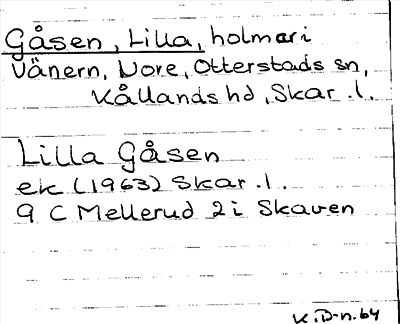 Gåsen, Lilla, holmar i
Vänern, Nore, Otterstads sn,
Kållands hd, Skar. l.
Lilla Gåsen
ek (1963) Skar. l.
9 C Mellerud 2 i Skaven
K. D-n. 64